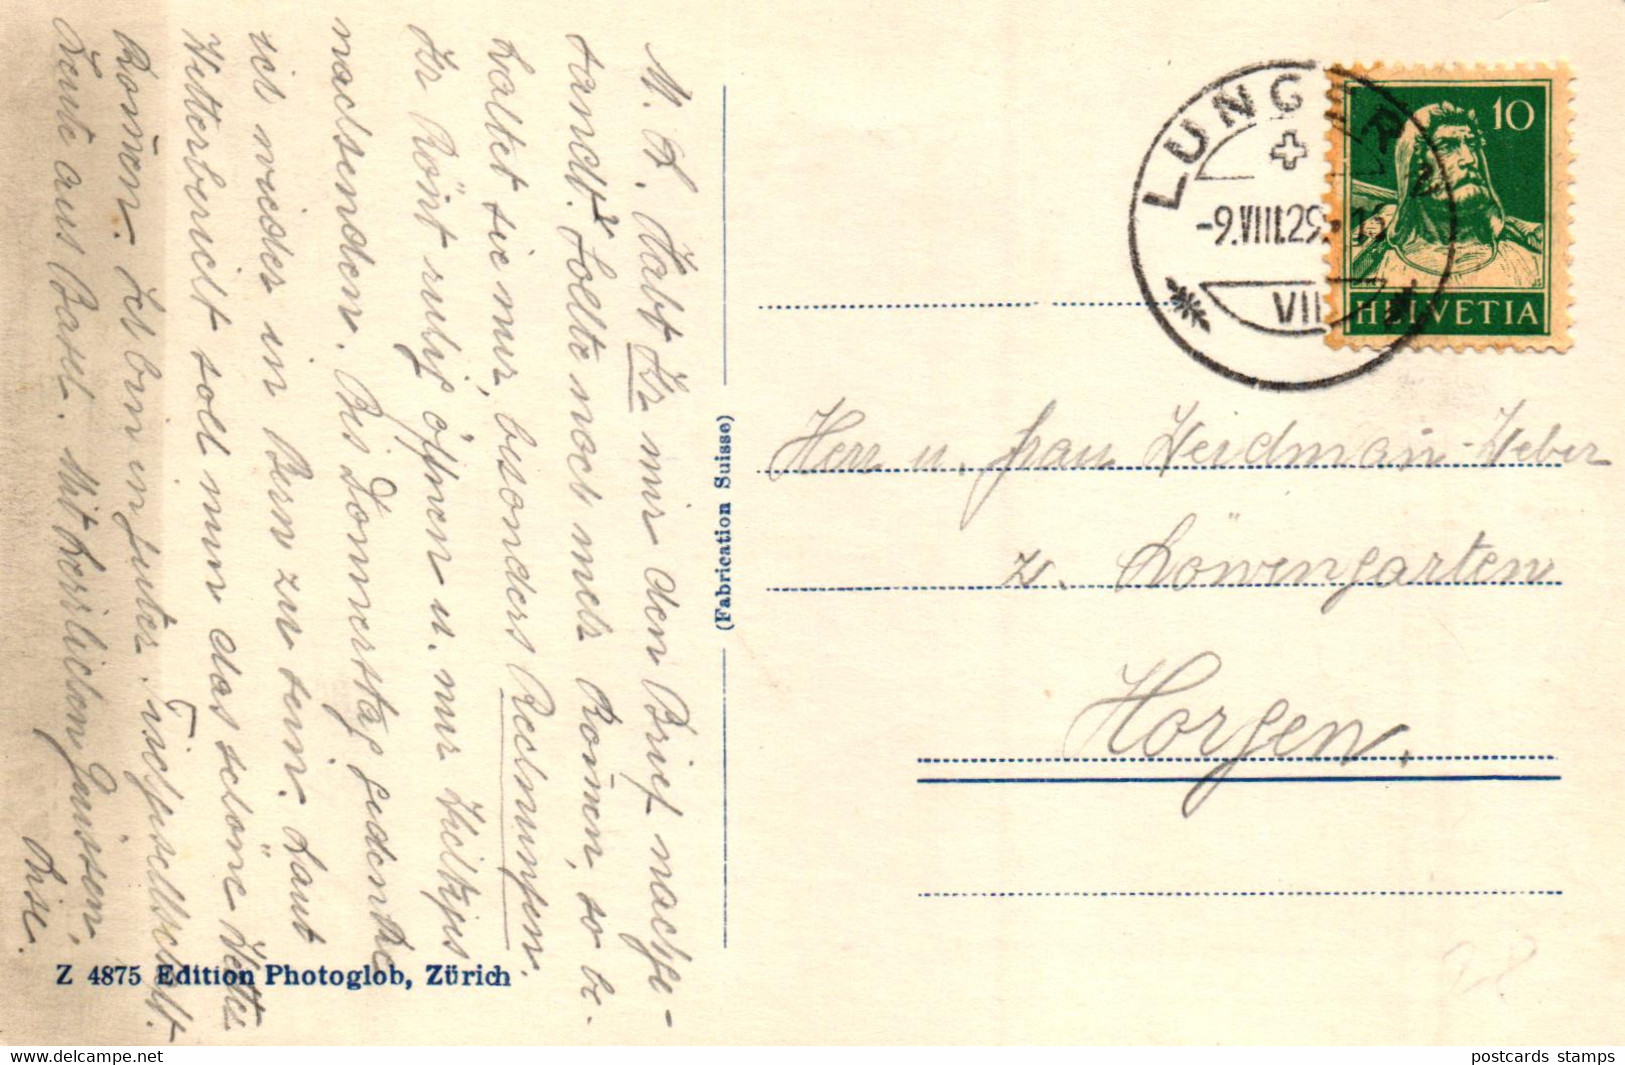 M. L. Habt Ihr mir den Brief nachge-
sandt? Sollte noch mehr kom̄en, so be-
haltet sie mir, besonders Rechnungen.
Ihr kön̄t ruhig öffnen u. nur
nachsenden. Bis Donnerstag gedenke
ich wieder in Bern zu sein. Laut
Wetterbericht soll nun das schöne Wetter
kom̄en. Ich bin in guter Tischgesellschaft.
Leute aus Basel. Mit herzlichen Grüssen,
Lise.
Z 4875 Edition Photoglob, Zürich
(Fabrication Suisse)
LUNGERN
-9.VIII.29.
VII
10
HELVETIA
Herr u. Frau Weidman̄-Weber
z. Löwengarten
Horgen.
www.delcampe.net
postcards stamps